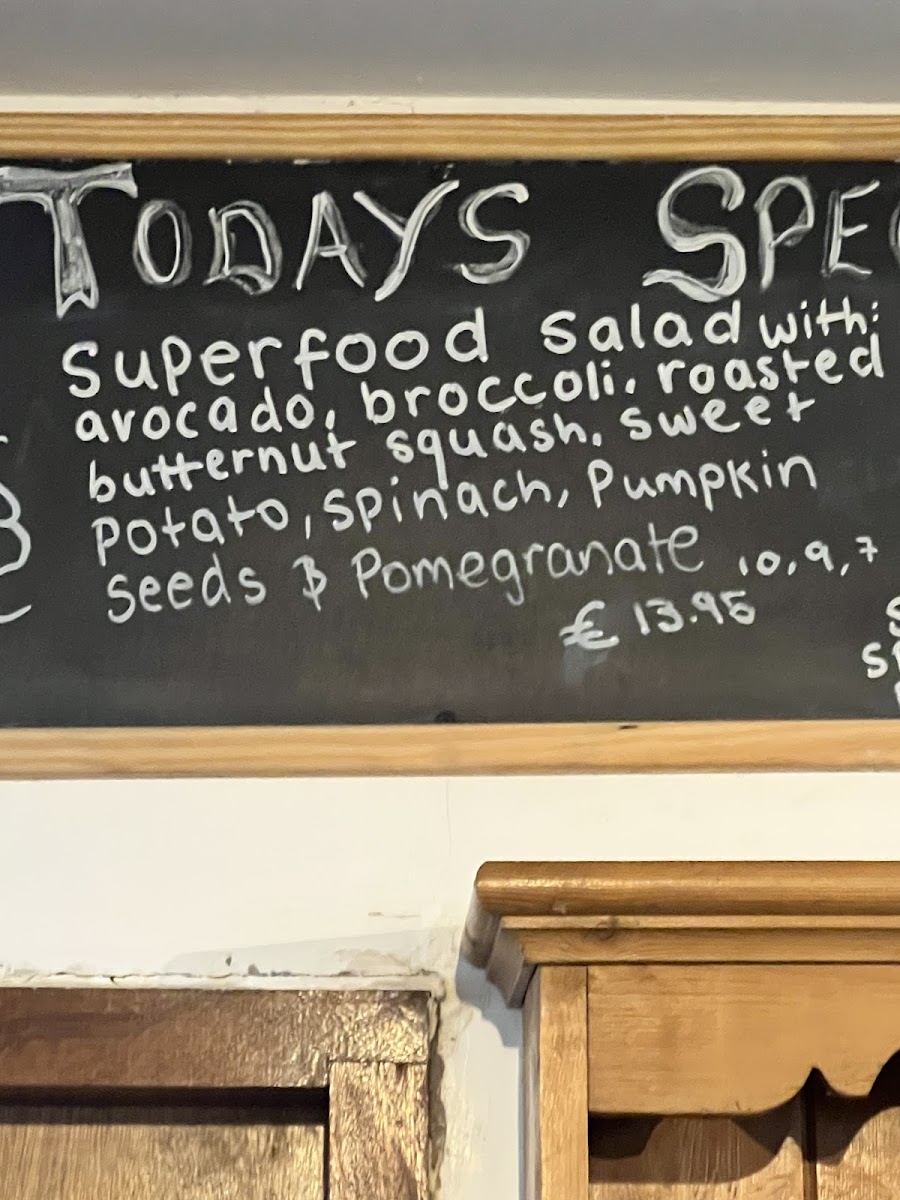 TODAYS SPE
Superfood Salad with:
avocado, broccoli, roasted
butternut squash, sweet
Potato, spinach, Pumpkin
seeds & Pomegranate 10, 9, 7
€ 13.95